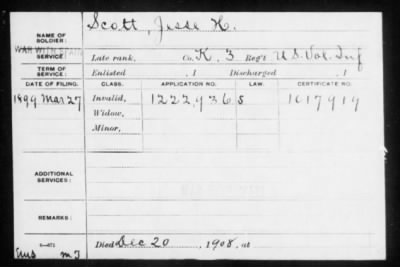 NAME OF SOLDIER: Scott, Jesse H.
WAR WITH SPAIN
SERVICE: Late rank, Co. K, 3 Reg't U S. Vol. Inf
TERM OF SERVICE: Enlisted , 1 Discharged , 1
DATE OF FILING. CLASS. APPLICATION NO. LAW. CERTIFICATE NO.
1899 Mar 27 Invalid, 1222936 S 1017919
Widow,
Minor,
ADDITIONAL SERVICES:
REMARKS:
Died Dec 20, 1908, at